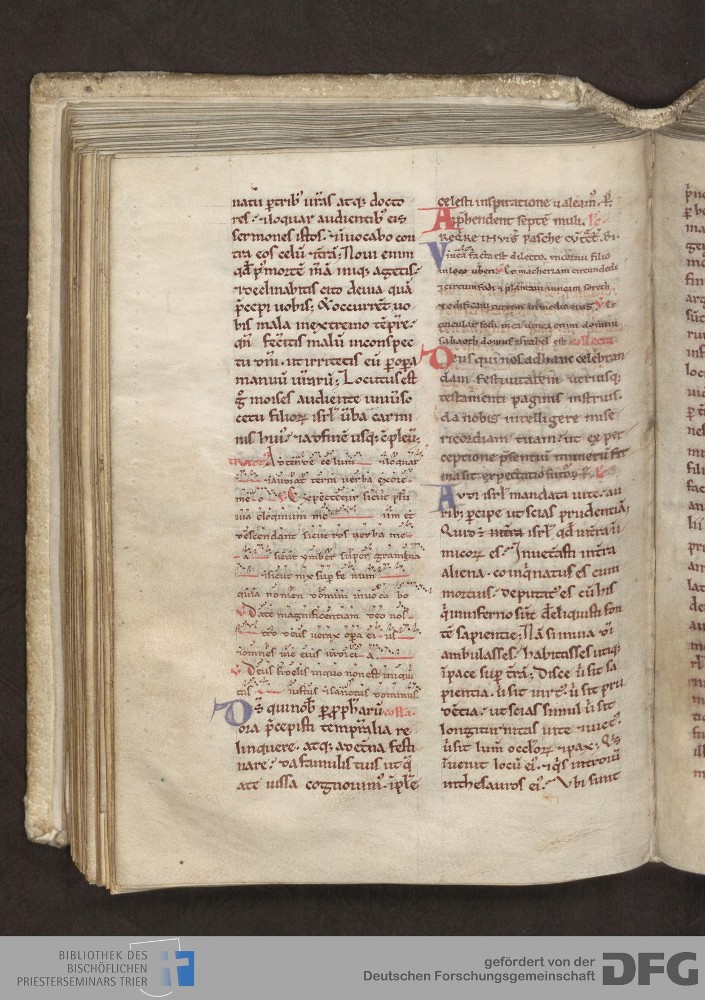 natu ꝑtrib' uras atq; docto
res. ⁊loquar audientib' eis
sermones istos. ⁊inuocabo con
tra eos celū ⁊trā; Noui enim
qđ p' mortē mēā iniq; agetis.
⁊declinabitis cito de uia quā
p̄cepi uobis; & occurrēt uo
bis mala in extremo tēpre.
qn̄ fec̄itis malū in conspec
tu dn̄i. ut irritetis eū p opa
manuū urarū; Locutus est
g° moises audiente uniuso
cetu filioꝝ isrł uba carmi
nis hui'. ⁊ad finē usq; c̄pleu;
Attende celum ⁊loquar
⁊audiat terra uerba ex ore
meo Expectetur sicut plu
uia eloquium me um et
descendant sicut ros uerba me
a sicut ymber super gramina
⁊sicut nix sup fe num
quia nomen domini inuoca bo
Date magnificentiam deo nos
tro deus uera opera ei us
⁊omnes uie eius iudici a
Deus fidelis in quo non est iniqui
tas iustus ⁊sanctus dominus
Ds qui nob' p pph'arū colla.
ora p̄cepisti temp̄ralia re
linquere. atq; ad et̄na festi
nare. da famulis tuis ut q̄
a te iussa cognouim'. īplē
celesti inspiratione ualeam'. P.
Apphendent septē muli.
Reqͥre
Vinea facta est dilecto. in cornu filio
in loco uberi Et maceriam circumdedi
⁊ circumfodi ⁊ plantaui uineam sorech
⁊edificaui turrim in medio eius Et
torcular fodi in ea uinea enim domini
sabaoth domus israhel est collecta
Deus qui nos ad hanc celebran
dam festiuitatem utriusq;
testamenti paginis instruis.
da nobis intelligere mise
ricordiam tuam. ut ex per
ceptione p̄sentiū munerū fir
ma sit expectatio futuroꝝ. P.
Audi isrł mandata uite. au
rib; percipe ut scias prudentiā;
Quid ē isrł qđ in trā in
imicoꝝ es; Inueterasti in tra
aliena. co inqͥnatus es cum
mortuis. deputat' es cū his
qͥ in inferno sūt; dereliqisti fon
tē sapientie; Nā si in uia dī
ambulasses. habitasses utiq;
in pace sup trā; Disce ubi sit sa
pientia. ubi sit uirt'. ubi sit pru
dētia. ut scias simul ubi sit
longiturnitas uite ⁊uict'.
ubi sit lum̄ occloꝝ ⁊pax; Qͥs
inuenit locū ei'. ⁊qͥs introiuit
in thesauros ei'. Vbi sunt
BIBLIOTHEK DES
BISCHÖFLICHEN
PRIESTERSEMINARS TRIER
gefördert von der
Deutschen Forschungsgemeinschaft
DFG